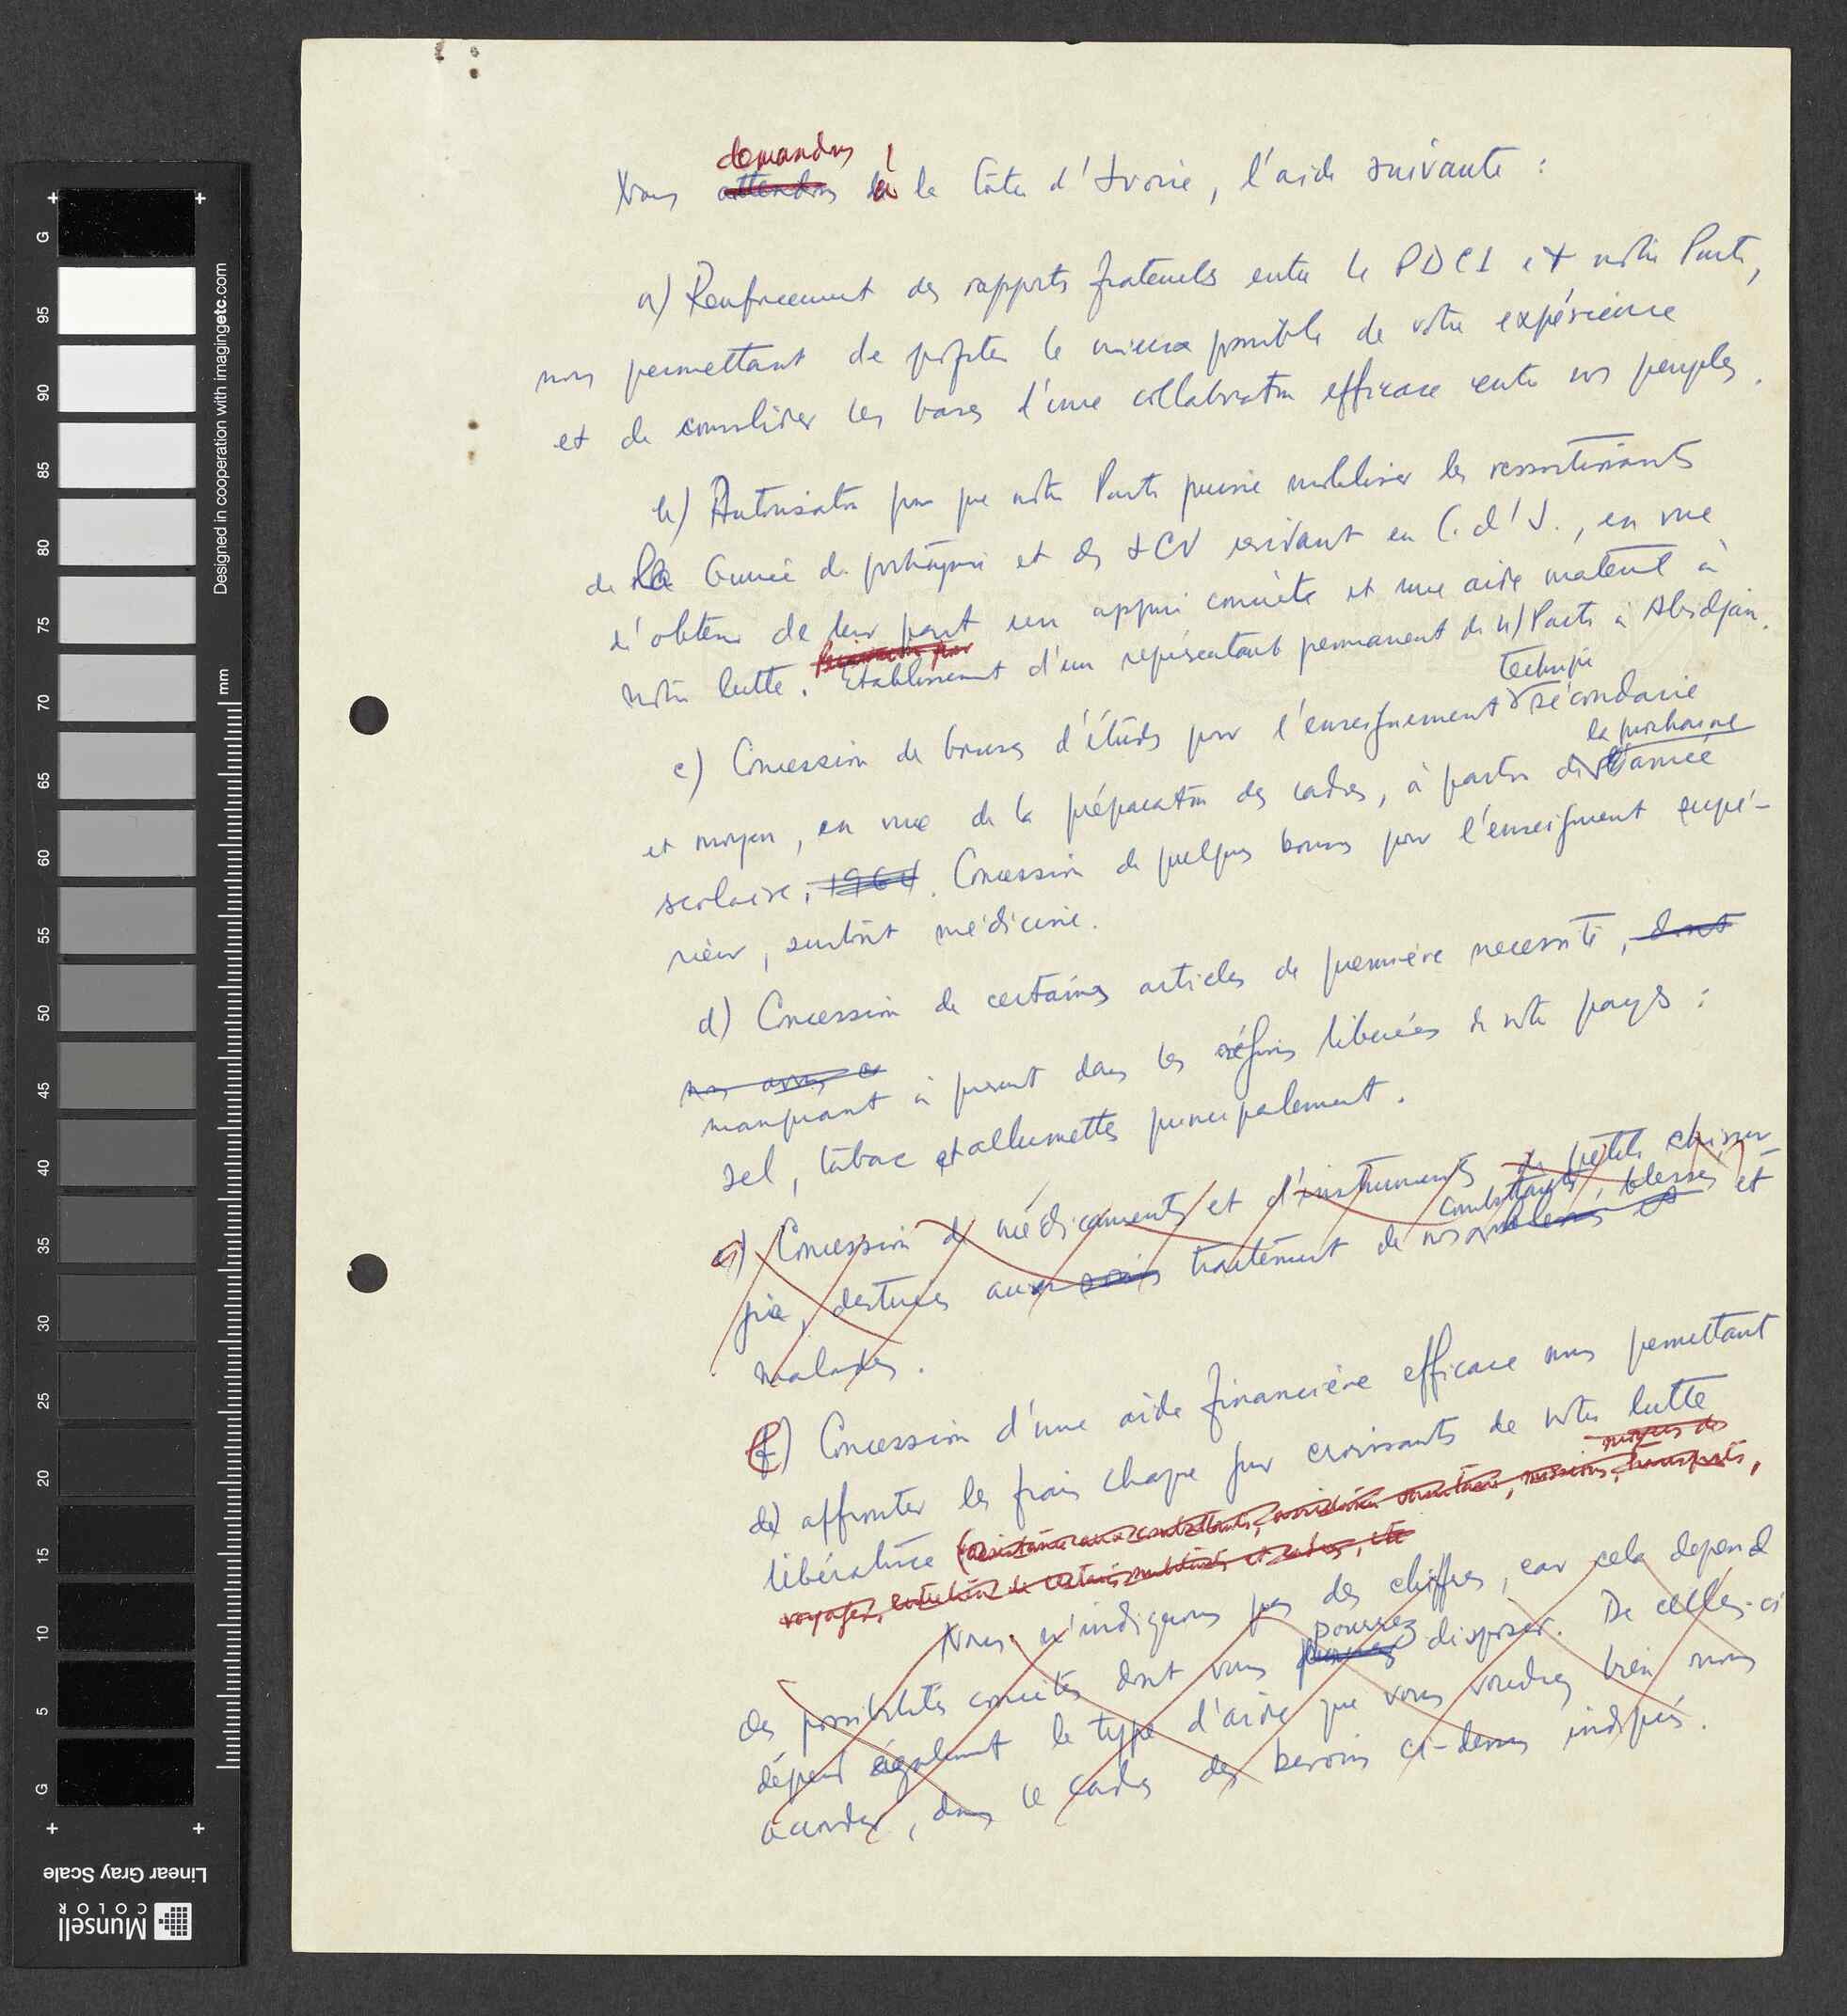 demandons
Nous attendons à la Côte d'Ivoire, l'aide suivante :
a) Renforcement des rapports fraternels entre le PDCI et notre Parti,
nous permettant de profiter le mieux possible de votre expérience
et de consolider les bases d'une collaboration efficace entre nos peuples.
b) Autorisation pour que notre Parti puisse mobiliser les ressortissants
de la Guinée dr. portugaise et des ICV résidant en C. d'I., en vue
d'obtenir de leur part un appui concrète et une aide matériel à
notre lutte. Etablissement d'un représentant permanent de n/Parti à Abidjan.
technique
c) Concession de bourses d'études pour l'enseignement secondaire
la prochaine
et moyen, en vue de la préparation des cadres, à partir de l'année
scolaire, 1964. Concession de quelques bourses pour l'enseignement supé-
rieur, surtout médicine.
d) Concession de certaines articles de première necessité, dont
manquant à présent dans les régions libérées de notre pays :
sel, tabac et allumettes principalement.
e) Concession de médicaments et d'instruments de petite chirur-
combattants, blessés et
gie, destinés aux soins traitement de nos blessés et
malades.
f) Concession d'une aide financière efficace nous permettant
de affronter les frais chaque jour croissants de notre lutte
moyens de
libératrice (assistance aux combattants, assistance sanitaire, missions, transports,
voyages, entretien de certains militants et cadres, etc
Nous n'indiquons pas des chiffres, car cela depend
pourrez
des possibilités concrètes dont vous pouvez disposer. De celles-ci
dépend également le type d'aide que vous voudrez bien nous
accorder, dans le cadre des besoins ci-dessus indiqués.
Munsell
COLOR
Linear Gray Scale
Designed in cooperation with imagingetc.com
mm
G
95
90
85
80
75
70
65
60
55
50
45
40
35
30
25
20
15
10
5
G